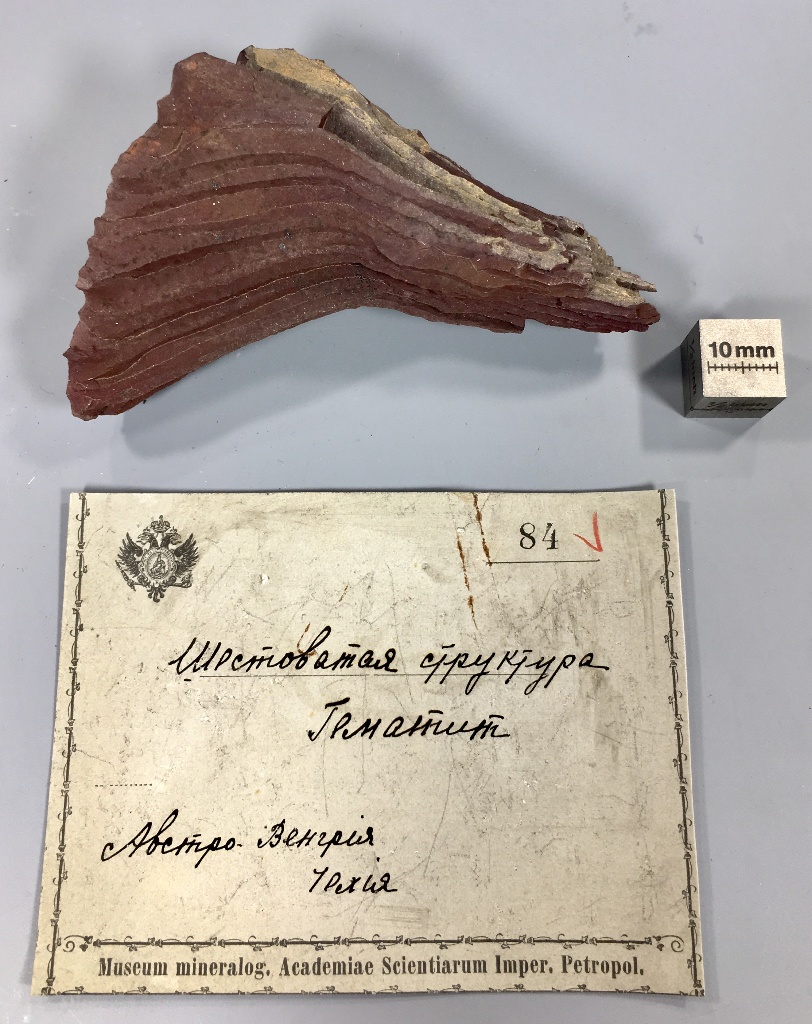 10 mm
84
Шестоватая структура
Гематит
Австро-Венгрія
Чехія
Museum mineralog. Academiae Scientiarum Imper. Petropol.